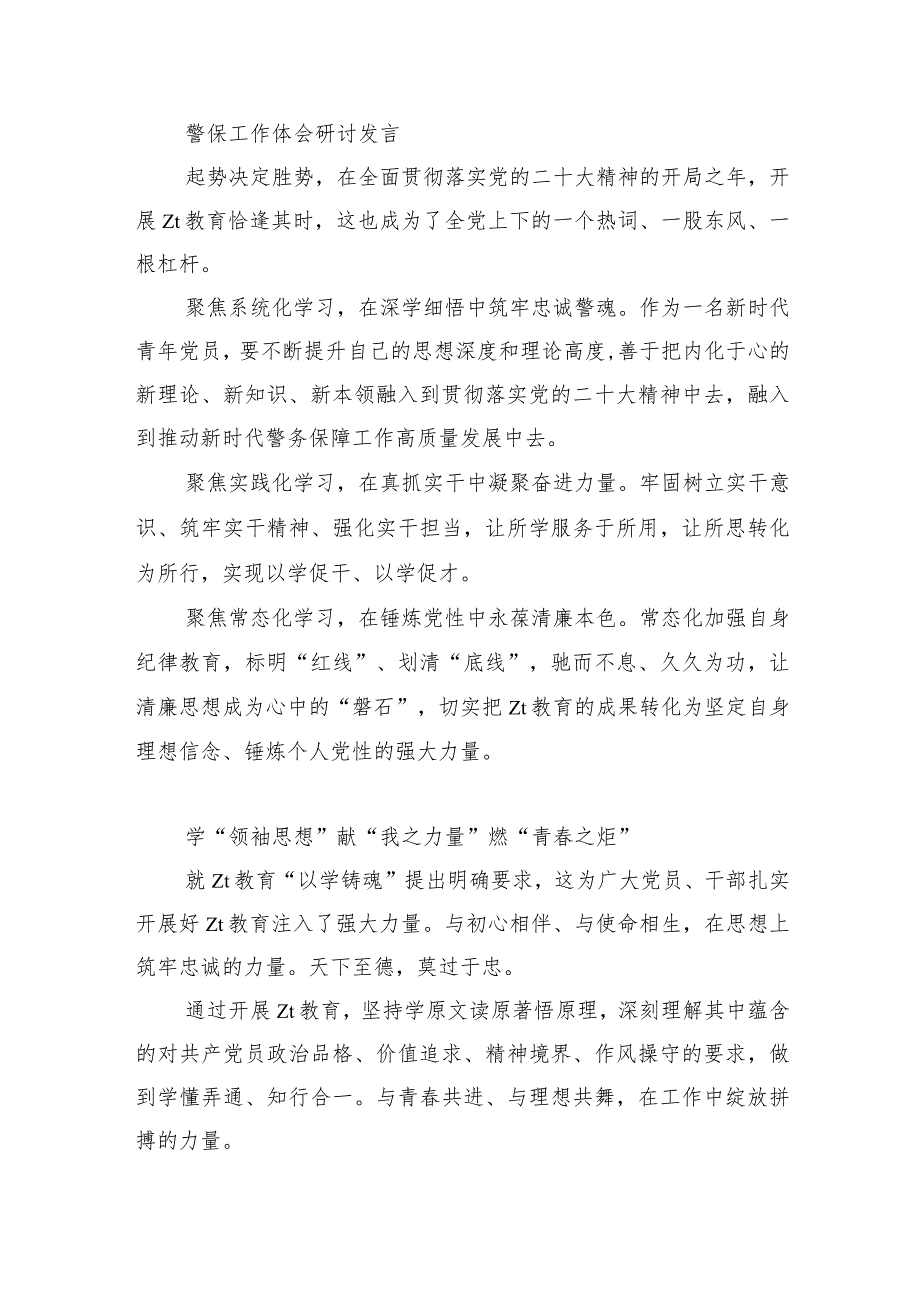 警保工作体会研讨发言
起势决定胜势，在全面贯彻落实党的二十大精神的开局之年，开
展Zt教育恰逢其时，这也成为了全党上下的一个热词、一股东风、一
根杠杆。
聚焦系统化学习，在深学细悟中筑牢忠诚警魂。作为一名新时代
青年党员，要不断提升自己的思想深度和理论高度,善于把内化于心的
新理论、新知识、新本领融入到贯彻落实党的二十大精神中去，融入
到推动新时代警务保障工作高质量发展中去。
聚焦实践化学习，在真抓实干中凝聚奋进力量。牢固树立实干意
识、筑牢实干精神、强化实干担当，让所学服务于所用，让所思转化
为所行，实现以学促干、以学促才。
聚焦常态化学习，在锤炼党性中永葆清廉本色。常态化加强自身
纪律教育，标明“红线”、划清“底线”，驰而不息、久久为功，让
清廉思想成为心中的“磐石”，切实把Zt教育的成果转化为坚定自身
理想信念、锤炼个人党性的强大力量。
学“领袖思想”献“我之力量”燃“青春之炬”
就Zt教育“以学铸魂”提出明确要求，这为广大党员、干部扎实
开展好Zt教育注入了强大力量。与初心相伴、与使命相生，在思想上
筑牢忠诚的力量。天下至德，莫过于忠。
通过开展Zt教育，坚持学原文读原著悟原理，深刻理解其中蕴含
的对共产党员政治品格、价值追求、精神境界、作风操守的要求，做
到学懂弄通、知行合一。与青春共进、与理想共舞，在工作中绽放拼
搏的力量。